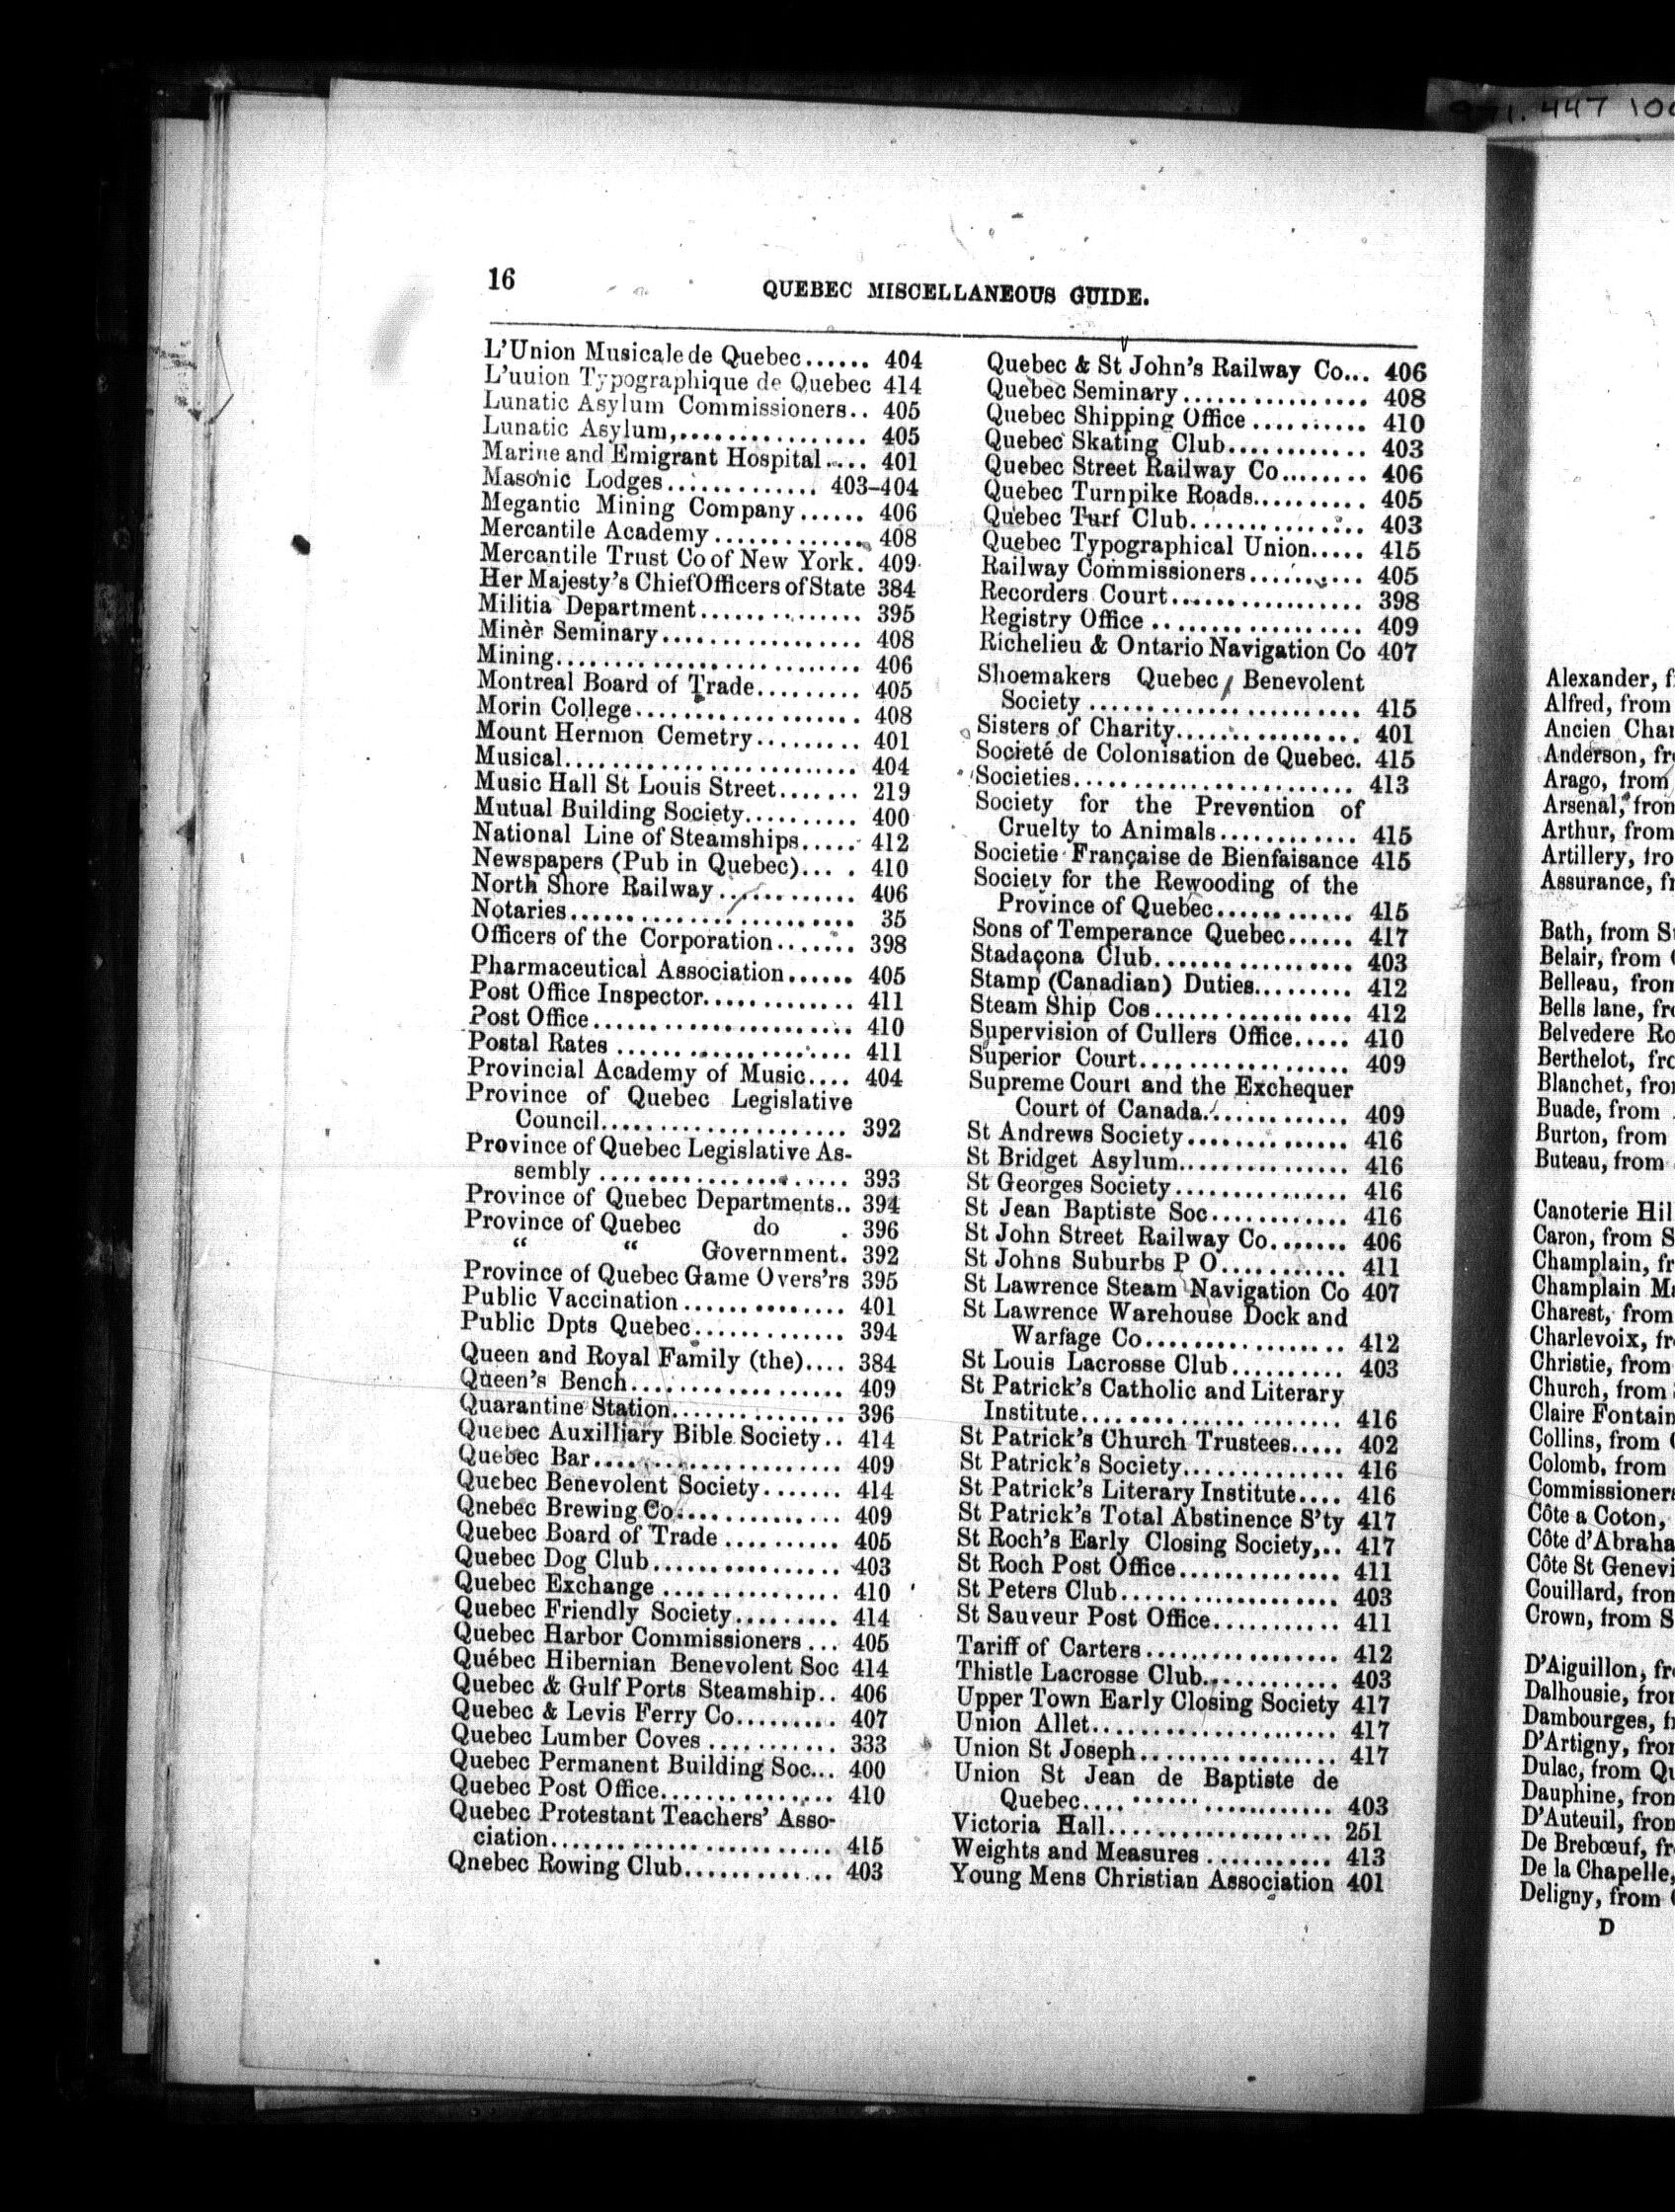 16
QUEBEC MISCELLANEOUS GUIDE.
L'Union Musicale de Quebec...... 404
L'uuion Typographique de Quebec 414
Lunatic Asylum Commissioners.. 405
Lunatic Asylum,................ 405
Marine and Emigrant Hospital.... 401
Masonic Lodges............. 403-404
Megantic Mining Company...... 406
Mercantile Academy............. 408
Mercantile Trust Co of New York. 409
Her Majesty's Chief Officers of State 384
Militia Department.............. 395
Minèr Seminary................. 408
Mining.......................... 406
Montreal Board of Trade......... 405
Morin College................... 408
Mount Hermon Cemetry......... 401
Musical......................... 404
Music Hall St Louis Street....... 219
Mutual Building Society.......... 400
National Line of Steamships..... 412
Newspapers (Pub in Quebec)... . 410
North Shore Railway............ 406
Notaries......................... 35
Officers of the Corporation....... 398
Pharmaceutical Association...... 405
Post Office Inspector............. 411
Post Office....................... 410
Postal Rates ..................... 411
Provincial Academy of Music.... 404
Province of Quebec Legislative
Council..................... 392
Province of Quebec Legislative As-
sembly ...................... 393
Province of Quebec Departments.. 394
Province of Quebec do . 396
“ “ Government. 392
Province of Quebec Game Overs'rs 395
Public Vaccination.............. 401
Public Dpts Quebec............. 394
Queen and Royal Family (the).... 384
Queen's Bench................... 409
Quarantine Station............... 396
Quebec Auxilliary Bible Society.. 414
Quebec Bar...................... 409
Quebec Benevolent Society....... 414
Qnebec Brewing Co.............. 409
Quebec Board of Trade .......... 405
Quebec Dog Club................ 403
Quebec Exchange ............... 410
Quebec Friendly Society......... 414
Quebec Harbor Commissioners ... 405
Québec Hibernian Benevolent Soc 414
Quebec & Gulf Ports Steamship.. 406
Quebec & Levis Ferry Co......... 407
Quebec Lumber Coves ........... 333
Quebec Permanent Building Soc... 400
Quebec Post Office............... 410
Quebec Protestant Teachers' Asso-
ciation......................... 415
Qnebec Rowing Club............. 403
Quebec & St John's Railway Co... 406
Quebec Seminary................ 408
Quebec Shipping Office .......... 410
Quebec Skating Club............ 403
Quebec Street Railway Co........ 406
Quebec Turnpike Roads.......... 405
Quebec Turf Club............... 403
Quebec Typographical Union..... 415
Railway Commissioners.......... 405
Recorders Court................. 398
Registry Office .................. 409
Richelieu & Ontario Navigation Co 407
Shoemakers Quebec Benevolent
Society ........................ 415
Sisters of Charity................ 401
Societé de Colonisation de Quebec. 415
Societies........................ 413
Society for the Prevention of
Cruelty to Animals............ 415
Societie Française de Bienfaisance 415
Society for the Rewooding of the
Province of Quebec............ 415
Sons of Temperance Quebec...... 417
Stadaçona Club.................. 403
Stamp (Canadian) Duties......... 412
Steam Ship Cos.................. 412
Supervision of Cullers Office..... 410
Superior Court................... 409
Supreme Court and the Exchequer
Court of Canada............. 409
St Andrews Society.............. 416
St Bridget Asylum............... 416
St Georges Society............... 416
St Jean Baptiste Soc............ 416
St John Street Railway Co....... 406
St Johns Suburbs P O........... 411
St Lawrence Steam Navigation Co 407
St Lawrence Warehouse Dock and
Warfage Co................. 412
St Louis Lacrosse Club.......... 403
St Patrick's Catholic and Literary
Institute....................... 416
St Patrick's Church Trustees..... 402
St Patrick's Society.............. 416
St Patrick's Literary Institute.... 416
St Patrick's Total Abstinence S'ty 417
St Roch's Early Closing Society,.. 417
St Roch Post Office.............. 411
St Peters Club................... 403
St Sauveur Post Office........... 411
Tariff of Carters................. 412
Thistle Lacrosse Club............ 403
Upper Town Early Closing Society 417
Union Allet...................... 417
Union St Joseph................. 417
Union St Jean de Baptiste de
Quebec..................... 403
Victoria Hall.................... 251
Weights and Measures ........... 413
Young Mens Christian Association 401
Alexander, f
Alfred, from
Ancien Cha
Anderson, fr
Arago, from
Arsenal, fron
Arthur, from
Artillery, fro
Assurance, fr
Bath, from S
Belair, from
Belleau, from
Bells lane, fr
Belvedere Ro
Berthelot, fro
Blanchet, fro
Buade, from
Burton, from
Buteau, from
Canoterie Hil
Caron, from S
Champlain, fr
Champlain M
Charest, from
Charlevoix, fr
Christie, from
Church, from
Claire Fontain
Collins, from
Colomb, from
Commissioner
Côte a Coton,
Côte d'Abraha
Côte St Genevi
Couillard, fron
Crown, from S
D'Aiguillon, fr
Dalhousie, fro
Dambourges, f
D'Artigny, fro
Dulac, from Qu
Dauphine, fron
D'Auteuil, fron
De Brebœuf, fr
De la Chapelle,
Deligny, from
D